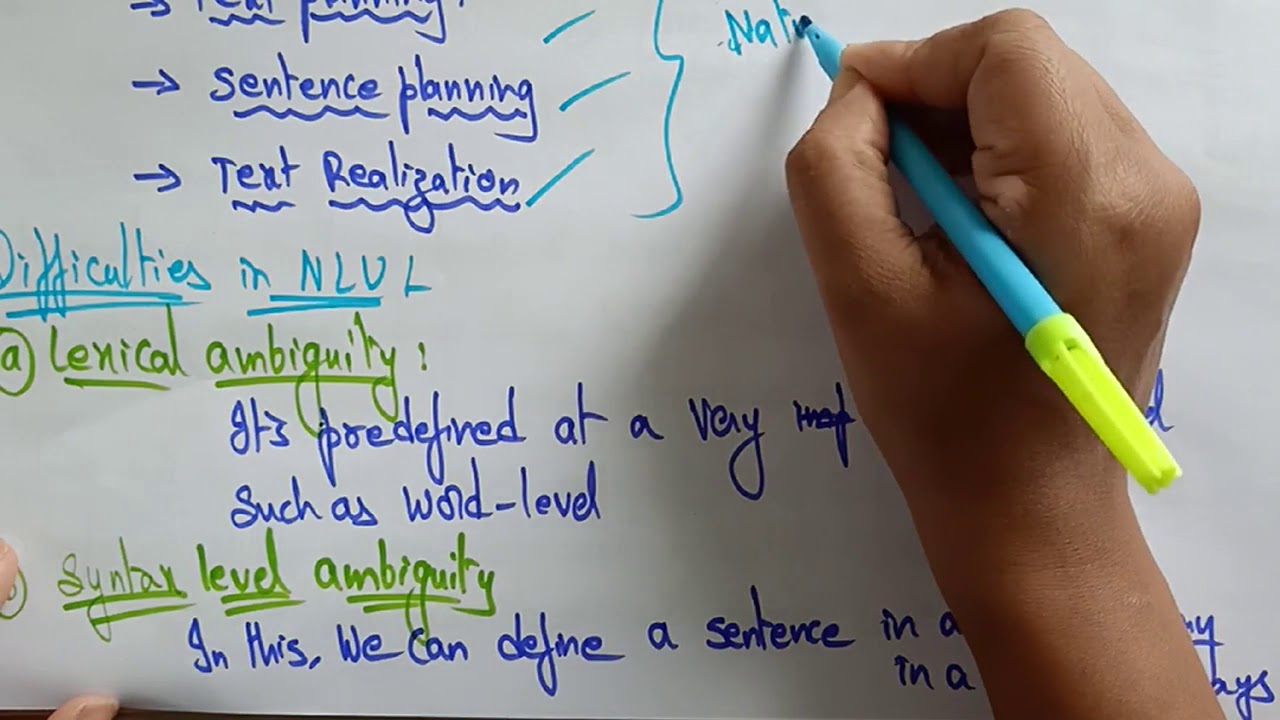 → Text planning:
→ Sentence planning
→ Text Realization
Natu
Difficulties in NLUL
a) Lexical ambiguity:
It's predefined at a very
Such as word-level
Syntax level ambiguity
In this, we can define a sentence in a
in a